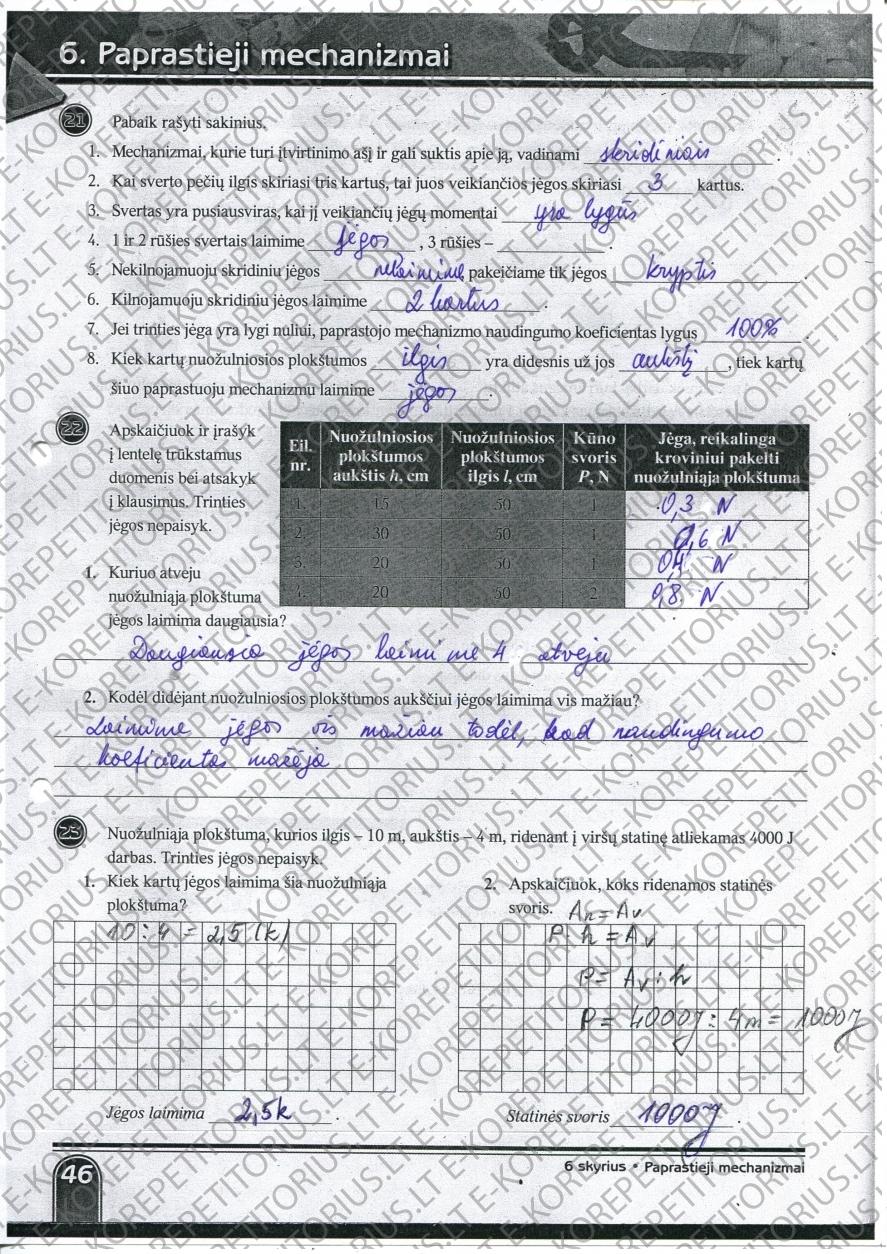 6. Paprastieji mechanizmai
21 Pabaik rašyti sakinius.
1. Mechanizmai, kurie turi įtvirtinimo ašį ir gali suktis apie ją, vadinami skridiniais.
2. Kai sverto pečių ilgis skiriasi tris kartus, tai juos veikiančios jėgos skiriasi 3 kartus.
3. Svertas yra pusiausviras, kai jį veikiančių jėgų momentai yra lygūs.
4. 1 ir 2 rūšies svertais laimime jėgos, 3 rūšies – .
5. Nekilnojamuoju skridiniu jėgos nelaimime pakeičiame tik jėgos kryptis.
6. Kilnojamuoju skridiniu jėgos laimime 2 kartus.
7. Jei trinties jėga yra lygi nuliui, paprastojo mechanizmo naudingumo koeficientas lygus 100%.
8. Kiek kartų nuožulniosios plokštumos ilgis yra didesnis už jos aukštį, tiek kartų
šiuo paprastuoju mechanizmu laimime jėgos.
22 Apskaičiuok ir įrašyk
į lentelę trūkstamus
duomenis bei atsakyk
į klausimus. Trinties
jėgos nepaisyk.
Eil. nr. Nuožulniosios plokštumos aukštis h, cm Nuožulniosios plokštumos ilgis l, cm Kūno svoris P, N Jėga, reikalinga kroviniui pakelti nuožulniąja plokštuma
1. 15 50 1 0,3 N
2. 30 50 1 0,6 N
3. 20 50 1 0,4 N
4. 20 50 2 0,8 N
1. Kuriuo atveju
nuožulniąja plokštuma
jėgos laimima daugiausia?
Daugiausia jėgos laimime 4 atveju
2. Kodėl didėjant nuožulniosios plokštumos aukščiui jėgos laimima vis mažiau?
Laimime jėgos vis mažiau todėl, kad naudingumo
koeficientas mažėja
23 Nuožulniąja plokštuma, kurios ilgis – 10 m, aukštis – 4 m, ridenant į viršų statinę atliekamas 4000 J
darbas. Trinties jėgos nepaisyk.
1. Kiek kartų jėgos laimima šia nuožulniąja
plokštuma?
10 : 4 = 2,5 (k)
Jėgos laimima 2,5k.
2. Apskaičiuok, koks ridenamos statinės
svoris. An = Av
P · h = Av
P = Av : h
P = 4000J : 4m = 1000J
Statinės svoris 1000J.
46
6 skyrius • Paprastieji mechanizmai
E-KOREPETITORIUS.LT